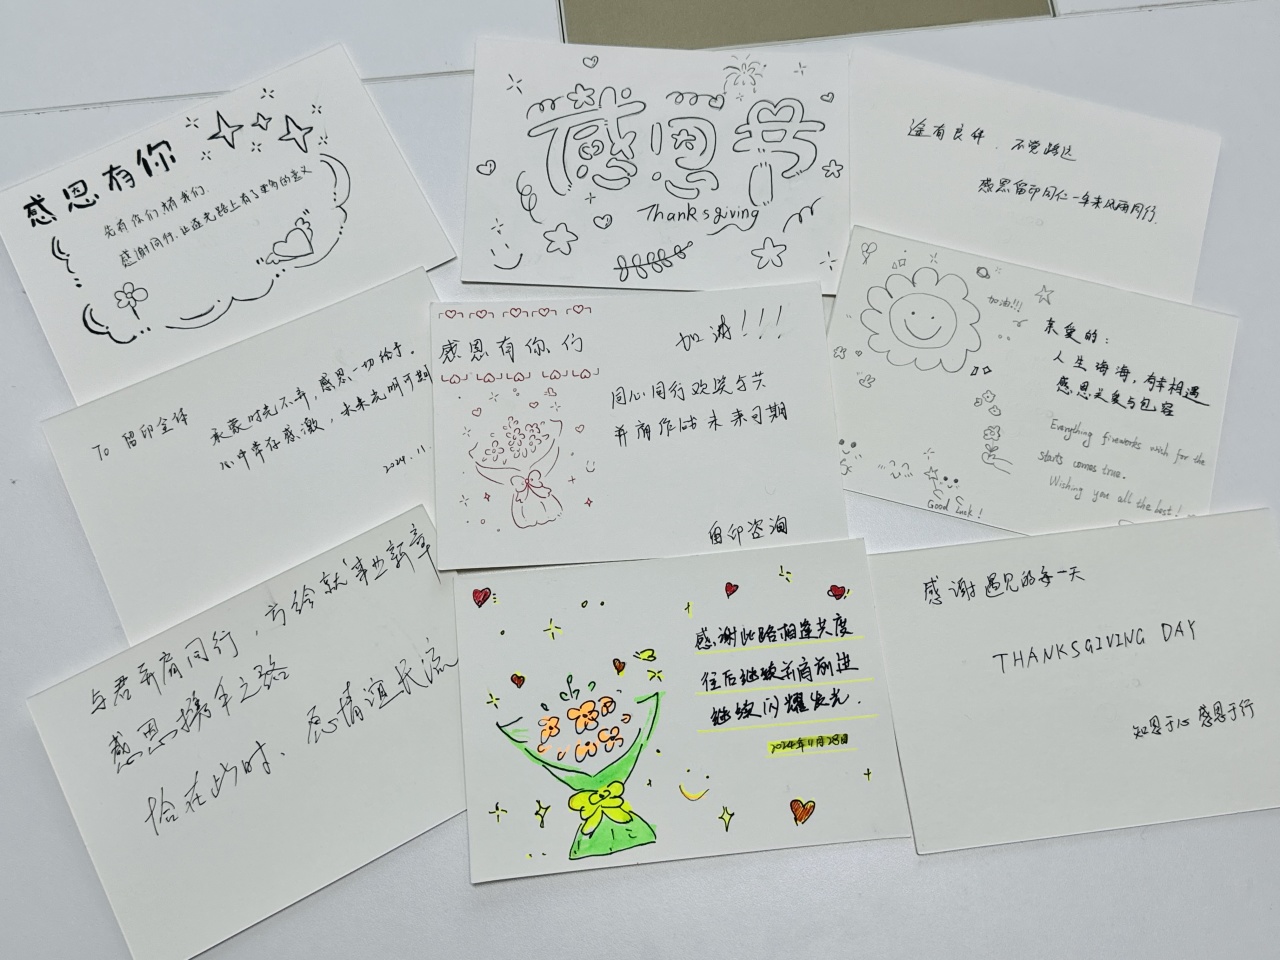 感恩有你
先有你们才有我们.
感谢同行,让逐光路上有了更多的意义
感恩节
Thanksgiving
途有良伴,不觉路远
感恩留印同仁一年来风雨同行.
To 留印全体
承蒙时光不弃,感恩一切给予.
心中常存感激,未来光明可期
2024.11.
感恩有你们
加油!!!
同心同行欢笑与共
并肩作战未来可期
留印咨询
加油!!!
亲爱的:
人生海海,有幸相遇
感恩关爱与包容
Everything fireworks wish for the
stars comes true.
Wishing you all the best!
Good Luck!
与君并肩同行,方绘就事业新章
感恩携手之路
恰在此时、愿情谊长流
感谢此路相逢共度
往后继续并肩前进
继续闪耀发光.
2024年11月28日
感谢遇见的每一天
THANKSGIVING DAY
知恩于心 感恩于行